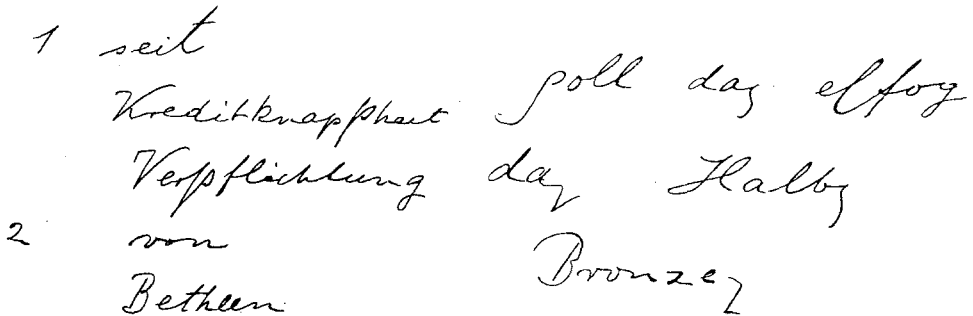 1 seit
Kreditknappheit soll das erfog
Verpflichtung das Halbz
2 von
Bethlen Bronzez